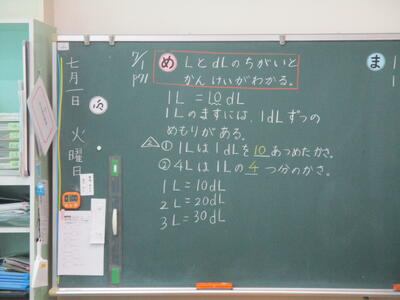 七月一日 火曜日
7/1
P71
め LとdLのちがいと
かんけいがわかる。
1L=10dL
1Lのますには、1dLずつの
めもりがある。
2
① 1Lは1dLを10あつめたかさ。
② 4Lは1Lの4つ分のかさ。
1L=10dL
2L=20dL
3L=30dL
ま
1